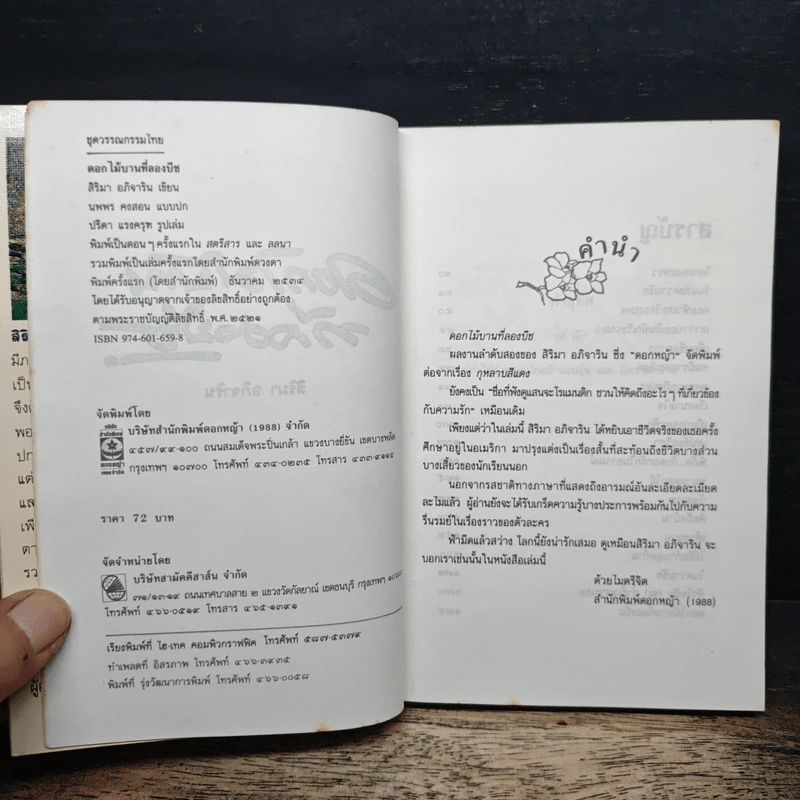 ชุดวรรณกรรมไทย
ดอกไม้บานที่ลองบีช
สิริมา อภิจาริน เขียน
นพพร คงสอน แบบปก
ปรีดา แรงครุฑ รูปเล่ม
พิมพ์เป็นตอนๆ ครั้งแรกใน สตรีสาร และ ลลนา
รวมพิมพ์เป็นเล่มครั้งแรกโดยสำนักพิมพ์ดวงตา
พิมพ์ครั้งแรก (โดยสำนักพิมพ์) ธันวาคม ๒๕๓๔
โดยได้รับอนุญาตจากเจ้าของลิขสิทธิ์อย่างถูกต้อง
ตามพระราชบัญญัติลิขสิทธิ์ พ.ศ. ๒๕๒๑
ISBN 974-601-659-8
จัดพิมพ์โดย
บริษัทสำนักพิมพ์ดอกหญ้า (1988) จำกัด
๔๕๗/๙๙-๑๐๐ ถนนสมเด็จพระปิ่นเกล้า แขวงบางยี่ขัน เขตบางพลัด
กรุงเทพฯ ๑๐๗๐๐ โทรศัพท์ ๔๓๔-๐๒๓๕ โทรสาร ๔๓๓-๙๑๑๔
ราคา 72 บาท
จัดจำหน่ายโดย
บริษัทสามัคคีสาส์น จำกัด
๗๑/๑๓-๑๙ ถนนเทศบาลสาย ๒ แขวงวัดกัลยาณ์ เขตธนบุรี กรุงเทพฯ
โทรศัพท์ ๔๖๖-๐๕๑๙ โทรสาร ๔๖๕-๑๓๙๑
เรียงพิมพ์ที่ ไฮ-เทค คอมพิวกราฟฟิค โทรศัพท์ ๕๘๗-๕๓๗๙
ทำเพลตที่ อิสรภาพ โทรศัพท์ ๔๖๖-๓๙๓๕
พิมพ์ที่ รุ่งวัฒนาการพิมพ์ โทรศัพท์ ๔๖๖-๐๐๕๘
คำนำ
ดอกไม้บานที่ลองบีช
ผลงานลำดับสองของ สิริมา อภิจาริน ซึ่ง “ดอกหญ้า” จัดพิมพ์
ต่อจากเรื่อง กุหลาบสีแดง
ยังคงเป็น “ชื่อที่ฟังดูแสนจะโรแมนติก ชวนให้คิดถึงอะไรๆ ที่เกี่ยวข้อง
กับความรัก” เหมือนเดิม
เพียงแต่ว่าในเล่มนี้ สิริมา อภิจาริน ได้หยิบเอาชีวิตจริงของเธอครั้ง
ศึกษาอยู่ในอเมริกา มาปรุงแต่งเป็นเรื่องสั้นที่สะท้อนถึงชีวิตบางส่วน
บางเสี้ยวของนักเรียนนอก
นอกจากรสชาติทางภาษาที่แสดงถึงอารมณ์อันละเอียดละเมียด
ละไมแล้ว ผู้อ่านยังจะได้รับเกร็ดความรู้บางประการพร้อมกันไปกับความ
รื่นรมย์ในเรื่องราวของตัวละคร
ฟ้ามืดแล้วสว่าง โลกนี้ยังน่ารักเสมอ ดูเหมือนสิริมา อภิจาริน จะ
บอกเราเช่นนั้นในหนังสือเล่มนี้
ด้วยไมตรีจิต
สำนักพิมพ์ดอกหญ้า (1988)